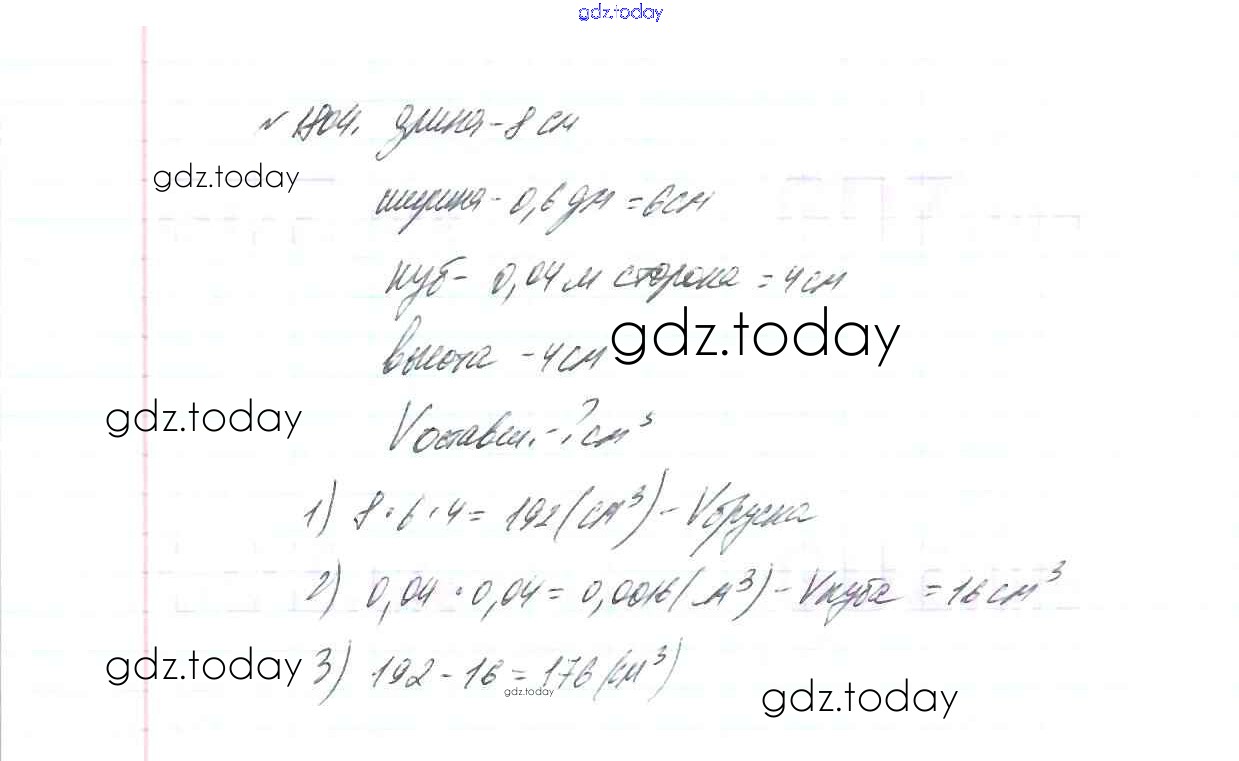 gdz.today
№ 1804. длина - 8 см
gdz.today
ширина - 0,6 дм = 6 см
куб - 0,04 м сторона = 4 см
gdz.today
высота - 4 см
gdz.today
V оставш. - ? см³
1) 8 · 6 · 4 = 192 (см³) - V бруска
2) 0,04 · 0,04 = 0,0016 (м³) - V куба = 16 см³
gdz.today
3) 192 - 16 = 176 (см³)
gdz.today
gdz.today